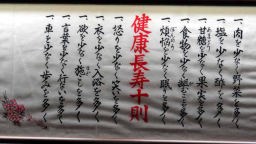 一、肉を少なく野菜を多く
一、塩を少なく酢を多く
一、甘糖を少なく果実を多く
一、食物を少なく齟を多く
一、煩悩を少なく眠を多く
健康長寿十則
一、怒りを少なく笑を多く
一、衣を少なく入浴を多く
一、欲を少なく施こを多く
一、言葉を少なく行ないを多く
一、車を少なく歩みを多く